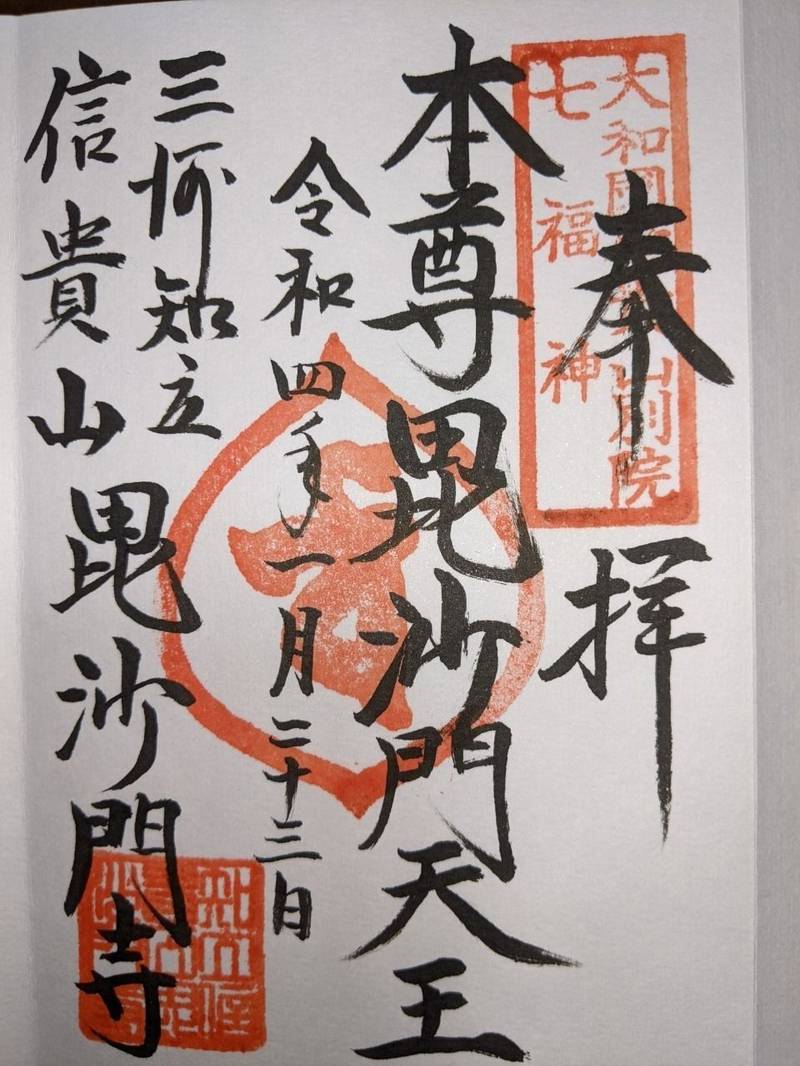 奉拝
大和國
山別院
七福神
本尊毘沙門天王
令和四年一月二十三日
三河知立
信貴山毘沙門寺